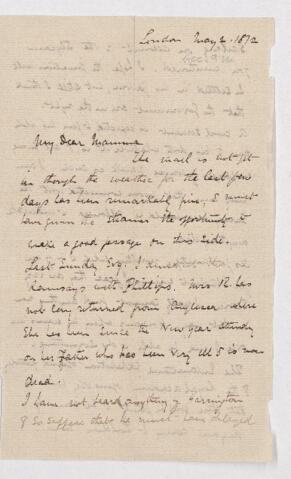 London May 2. 1872
My Dear Mamma
The mail is not yet
in though the weather for the last few
days has been remarkably fine, & must
have given the Steamer the opportunity to
make a good passage on this side.
Last Sunday Evg. I dined
Ramsays with Phillips. Mrs R. has
not long returned from Anglesea where
She has been Since the New Year attending
on her father who has been very ill & is now
dead.
I have not heard anything of Harrington
& So suppose that he must have delayed